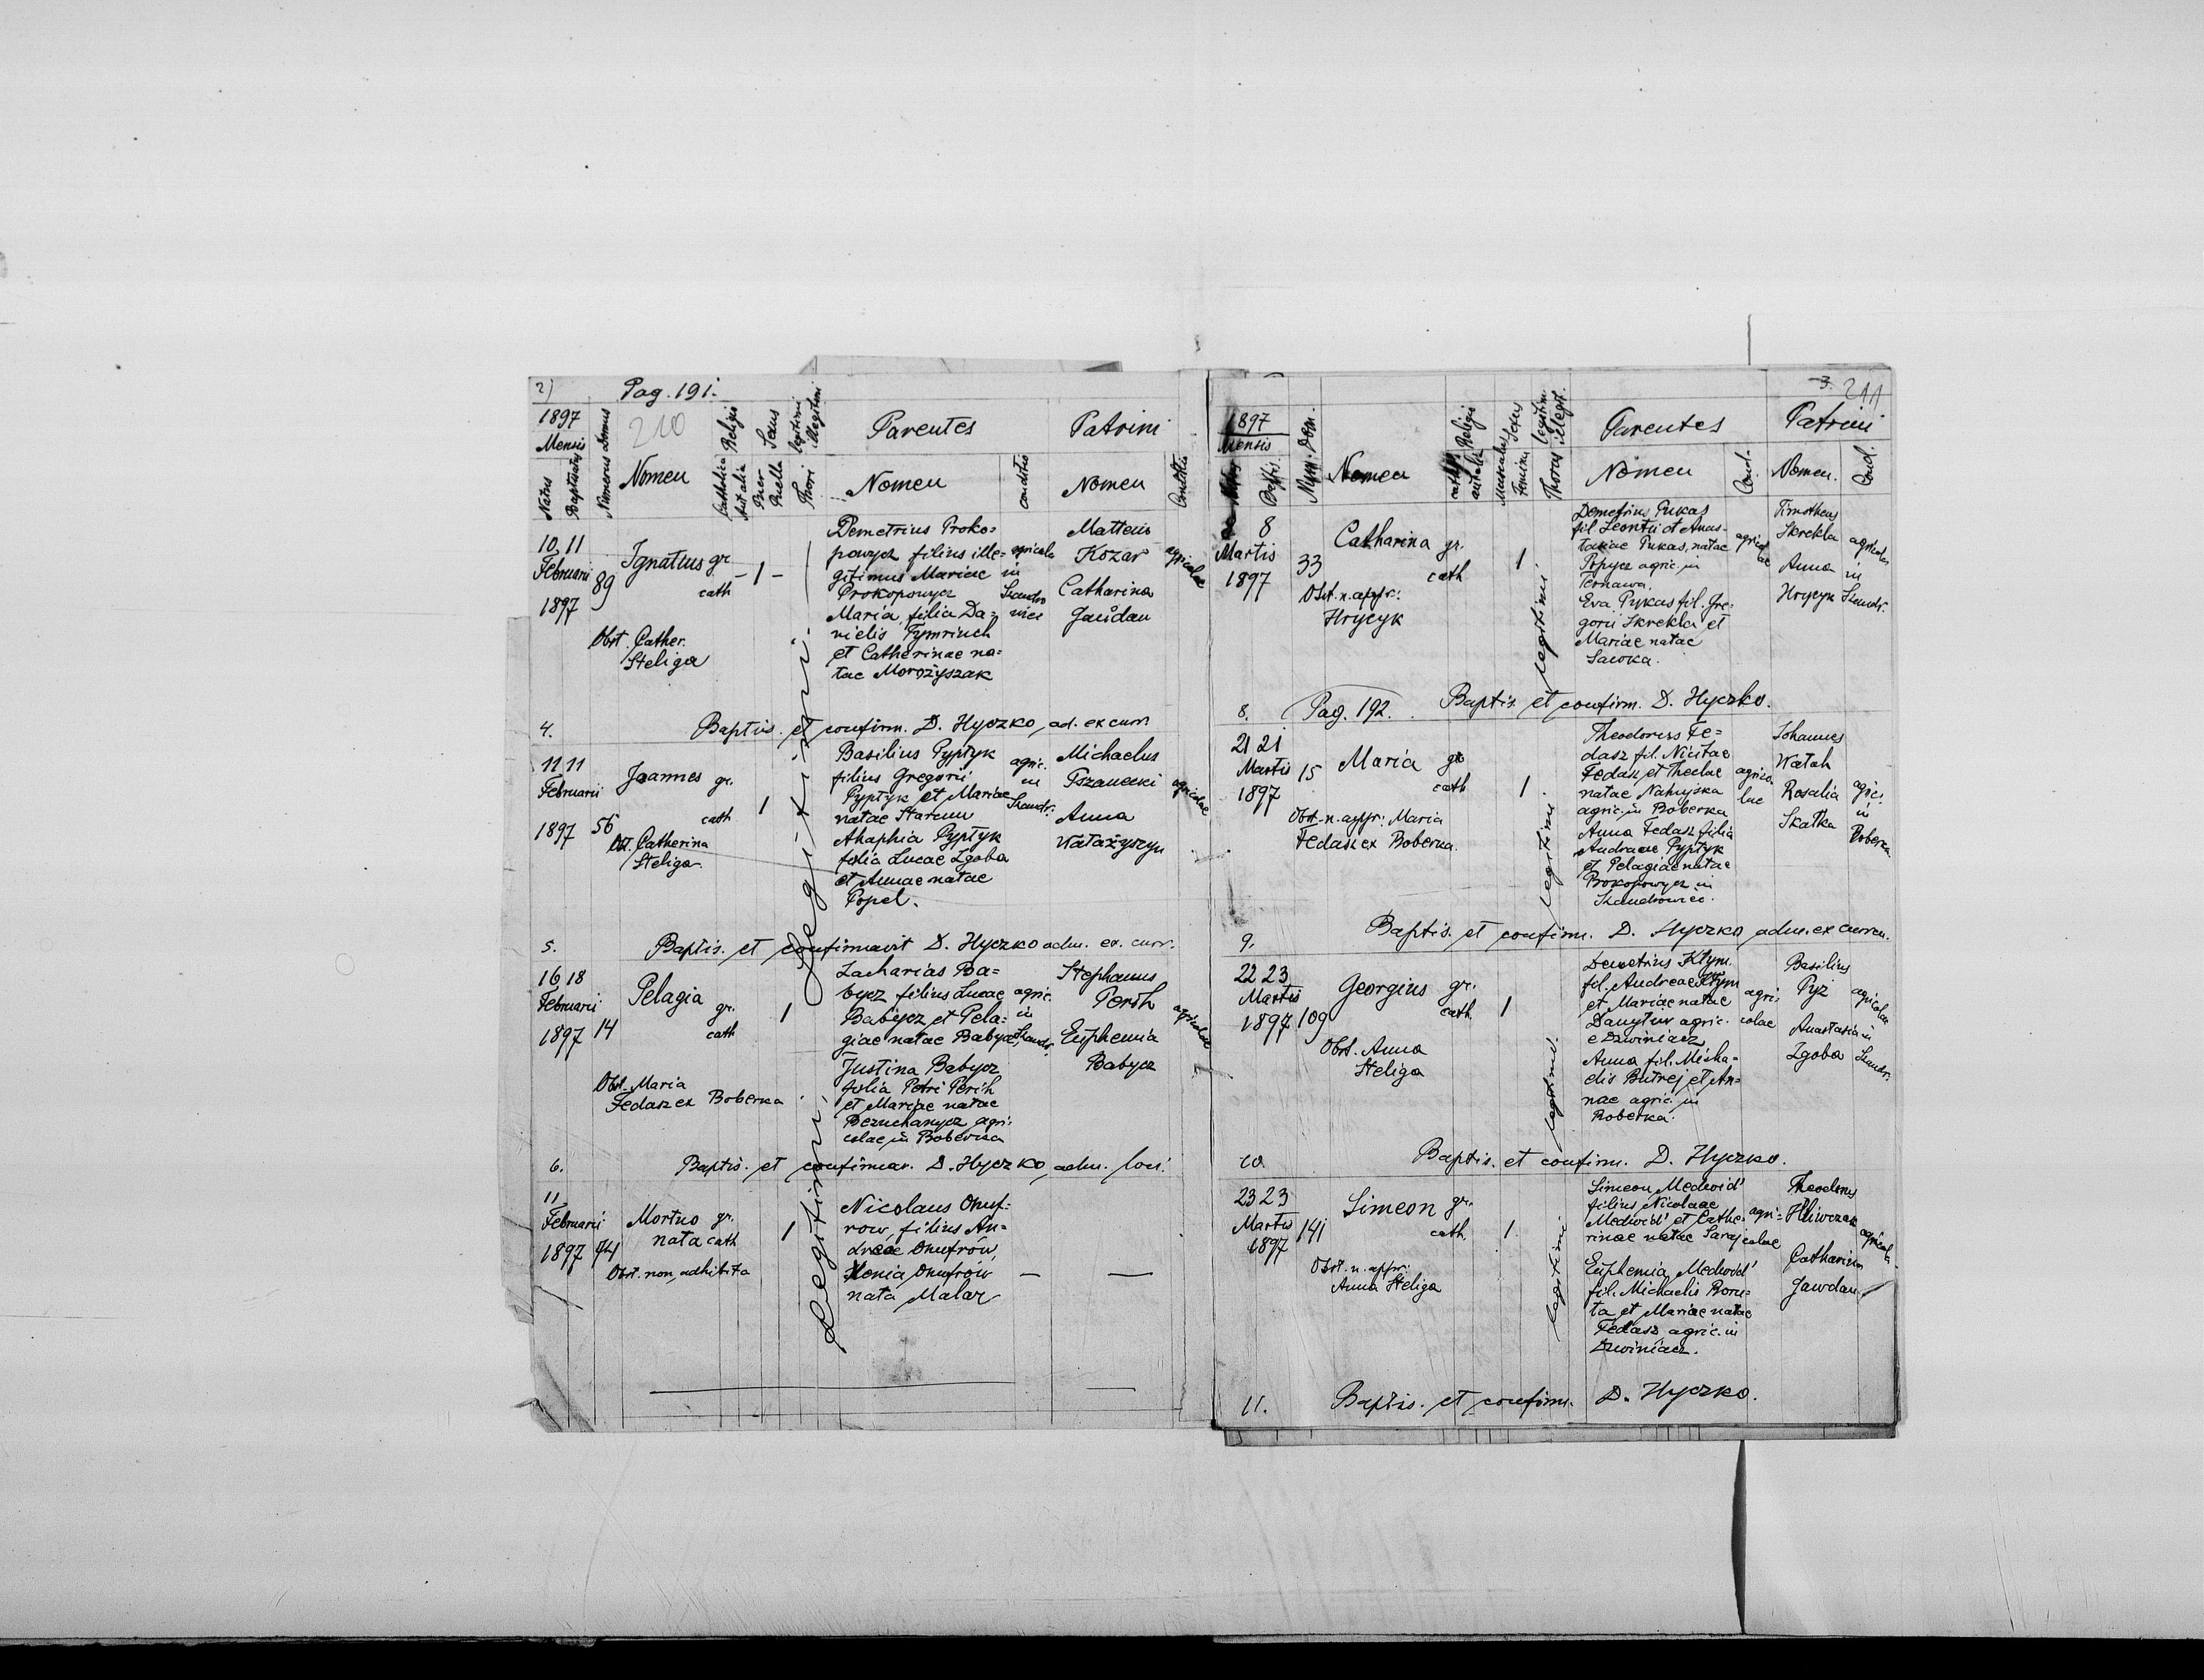 2) Pag. 191.
1897
210
Mensis
Natus
Baptisatus
Numerus Domus
Nomen
Religio
Catholica
Aut alia
Sexus
Puer
Puella
legitimi
illegitimi
Thori
Parentes
Nomen
Conditio
Patrini
Nomen
Conditio
10 11
Februarii
1897
89
Ignatius gr.
cath
– 1 –
Obst. Cather.
Steliga
Demetrius Proko=
powycz filius ille=
gitimus Mariae
Prokopowycz
Maria filia Da=
nielis Tymrinch
et Catherinae na=
tae Morozyszak
agricola
in
Matteus
Kozar
Catharina
Gaudan
agricolae
4. Baptis. et confirm. D. Hyczko, ad. ex curr.
11 11
Februarii
1897 56
Joannes gr.
cath
1
Obst. Catherina
Steliga
Basilius Pyptyk
filius Gregorii
Pyptyk et Mariae
natae Starunu
Ahaphia Pyptyk
filia Lucae Zgoba
et Annae natae
Popel.
agric.
in
Szandr.
Michaelus
Pszanecki
Anna
Watażyszyn
agricolae
Legitimi.
5. Baptis. et confirmavit D. Hyczko adm. ex. curr.
16 18
Februarii
1897 14
Pelagia
gr.
cath
1
Obst. Maria
Fedasz ex Boberka
Zacharias Ba=
bycz filius Lucae
Babycz et Pela=
giae natae Babycz
Justina Babycz
filia Petri Perih
et Mariae natae
Bezuchanycz agri=
colae in Boberka
agric.
in
Szandr.
Stephanus
Perih
Euphemia
Babycz
agricolae
6. Baptis. et confirmav. D. Hyczko, adm. loci.
11
Februarii
1897 74
Mortuo gr.
nata cath
1
Obst. non adhibita
Nicolaus Onuf=
row, filius An=
dreae Onufrów,
Xenia Onufrów
nata Malar
Legitimi.
3. 211
1897
Mensis
Natus
Bapti.
Num. Dom.
Nomen
Religio
cathol.
aut alia
Sexus
Masculus
Femina
legitim.
illegit.
Thorus
Parentes
Nomen
Cond.
Patrini
Nomen.
Cond.
8
Martis
1897
33
Catharina gr.
cath
1
Obst. n. appr.
Hrycyk
legitimi.
Demetrius Pukas
fil. Leontii et Anas-
tasiae Pukas, natae
Popycz agric. in
Ternawa.
Eva Pukas fil. Gre=
gorii Skrekla et
Mariae natae
Sawka.
agricolae
Timotheus
Skrekla
Anna
Hrycyk
agricolae
in
Szandr.
8. Pag. 192. Baptis. et confirm. D. Hyczko.
21 21
Martis
1897
15
Maria gr.
cath
1.
Obst. n. appr. Maria
Fedasz ex Boberka.
legitimi.
Theodorus Fe=
dasz fil. Nicitae
Fedasz et Theclae
natae Nahujska
agric. in Boberka
Anna Fedasz filia
Andreae Pyptyk
et Pelagiae natae
Prokopowycz in
Szandrowiec.
agrico
lae
Johannes
Watah
Rosalia
Skatka
agric.
in
Boberka
9. Baptis. et confirm. D. Hyczko, adm. ex curren.
22 23
Martis
1897 109
Georgius gr.
cath.
1
Obst. Anna
Steliga
legitimi.
Demetrius Klym
fil. Andreae Klym
et Mariae natae
Danyluk agric.
e Dzwiniacz
Anna fil. Micha=
elis Butrej et An=
nae agric. in
Boberka.
agri=
colae
Basilius
Pyż
Anastasia
Zgoba
agricolae
in
Szandr.
10. Baptis. et confirm. D. Hyczko.
23 23
Martis
1897
141
Simeon gr.
cath.
1.
Obst. n. appr.
Anna Steliga
legitimi.
Simeon Medwid'
filius Nicolaae
Medwid' et Cathe=
rinae natae Saraj
Euphemia Medwid'
fil. Michaelis Boru=
ta et Mariae natae
Fedasz agric. in
Dzwiniacz.
agri=
colae
Theodorus
Hliwczak
Catharina
Gawdan
agricolae.
11. Baptis. et confirm. D. Hyczko.